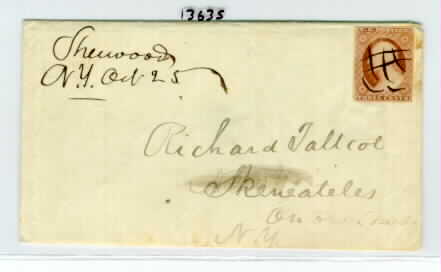 13635
Sherwood
N.Y. Oct 25
THREE CENTS
Richard Talcot
Skeneateles
N.Y.